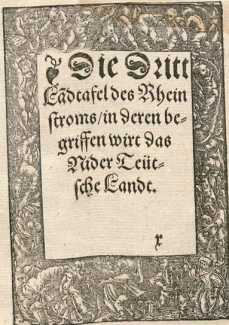 Die Dritt
Lādtafel des Rhein
stroms/in deren be-
griffen wirt das
Nider Teüt-
sche Landt.
x